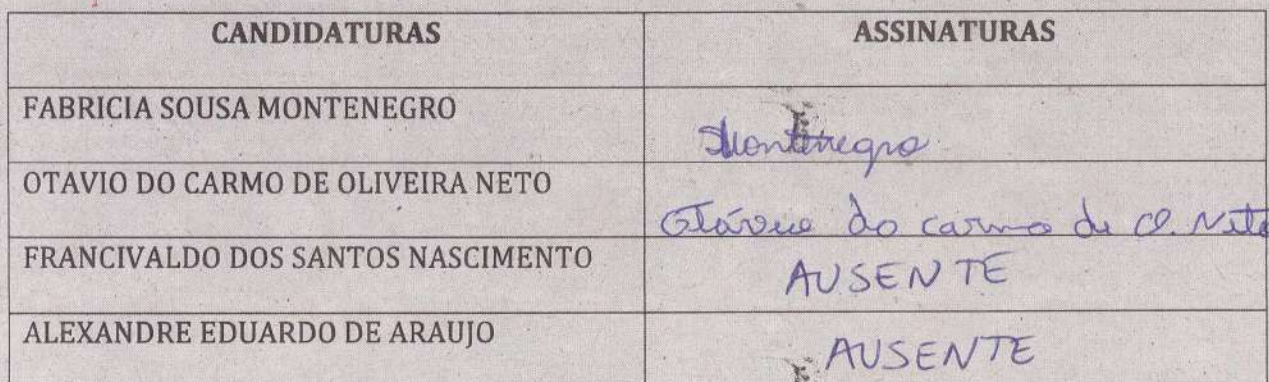 CANDIDATURAS ASSINATURAS
FABRICIA SOUSA MONTENEGRO Montenegro
OTAVIO DO CARMO DE OLIVEIRA NETO Otávio do carmo de O. Neto
FRANCIVALDO DOS SANTOS NASCIMENTO AUSENTE
ALEXANDRE EDUARDO DE ARAUJO AUSENTE